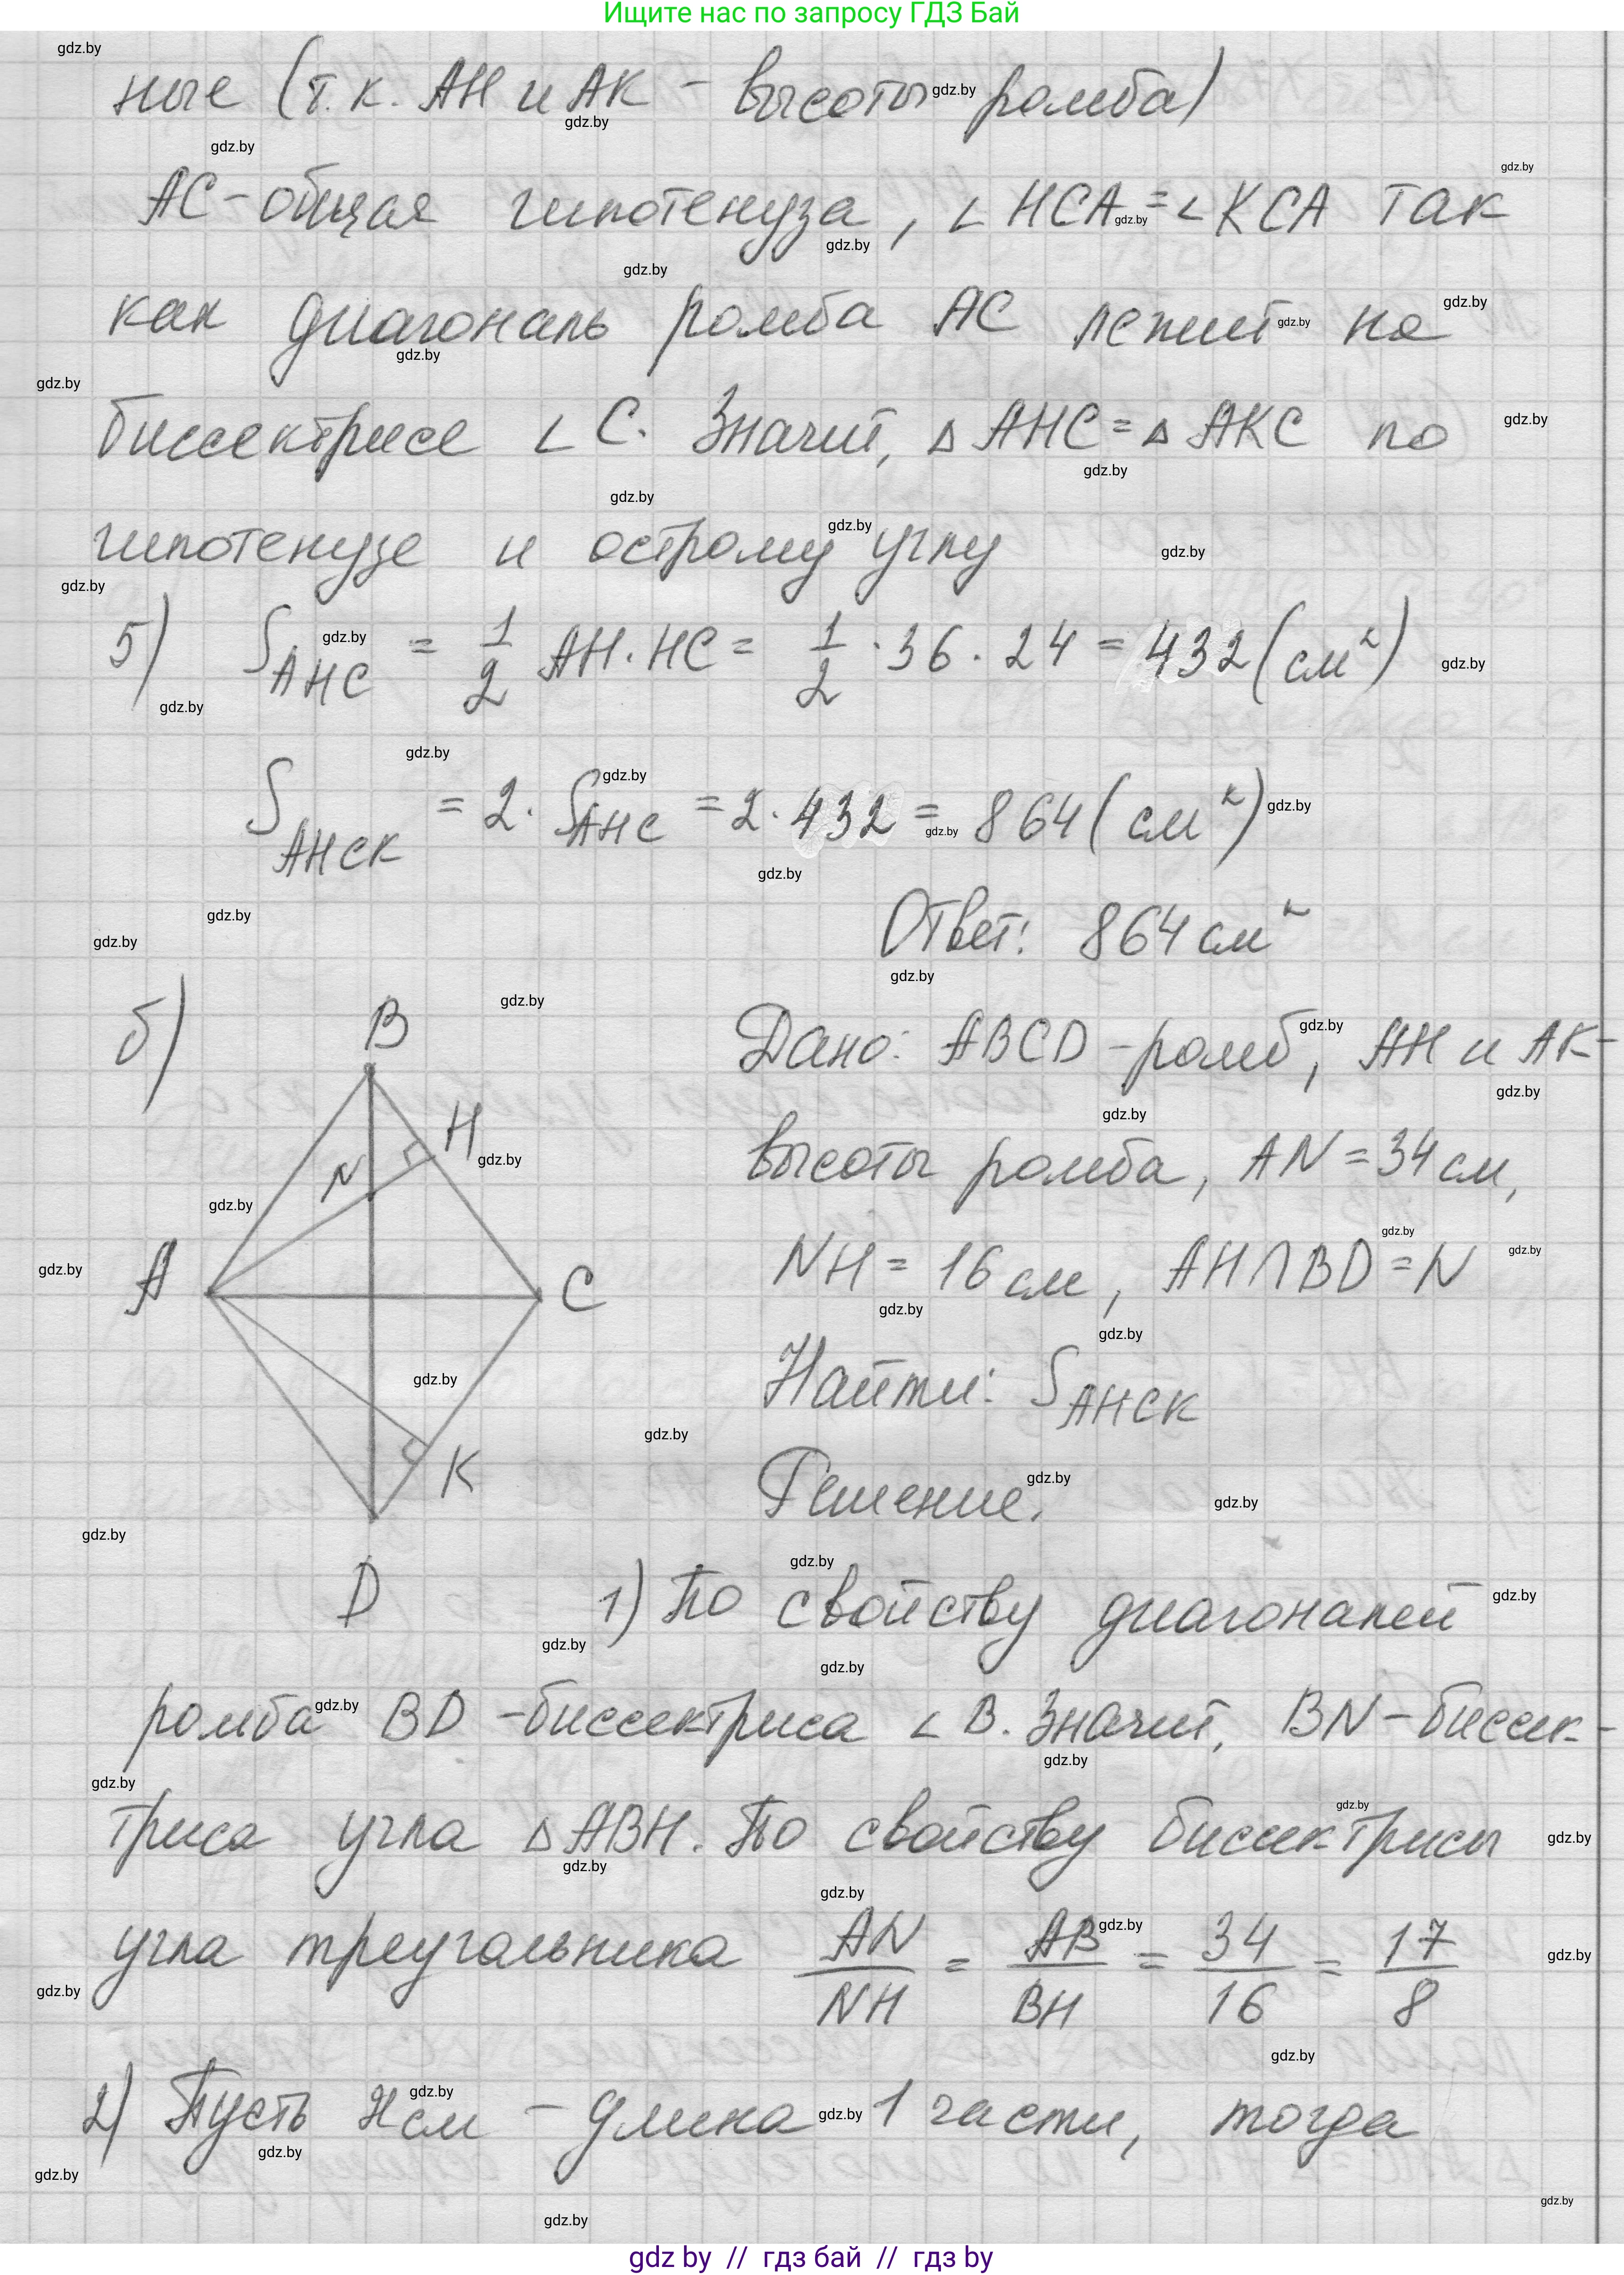 Ищите нас по запросу ГДЗ Бай
ные (т.к. AH и AK - высоты ромба)
AC - общая гипотенуза, ∠HCA = ∠KCA так
как диагональ ромба AC лежит на
биссектрисе ∠C. Значит, △AHC = △AKC по
гипотенузе и острому углу
5) S_AHC = 1/2 AH · HC = 1/2 · 36 · 24 = 432 (см²)
S_AHCK = 2 · S_AHC = 2 · 432 = 864 (см²)
Ответ: 864 см²
б)
B
H
N
A
C
K
D
Дано: ABCD - ромб, AH и AK -
высоты ромба, AN = 34 см,
NH = 16 см, AH ∩ BD = N
Найти: S_AHCK
Решение.
1) По свойству диагоналей
ромба BD - биссектриса ∠B. Значит, BN - биссек-
триса угла △ABH. По свойству биссектрисы
угла треугольника AN/NH = AB/BH = 34/16 = 17/8
2) Пусть x см - длина 1 части, тогда
gdz by // гдз бай // гдз by